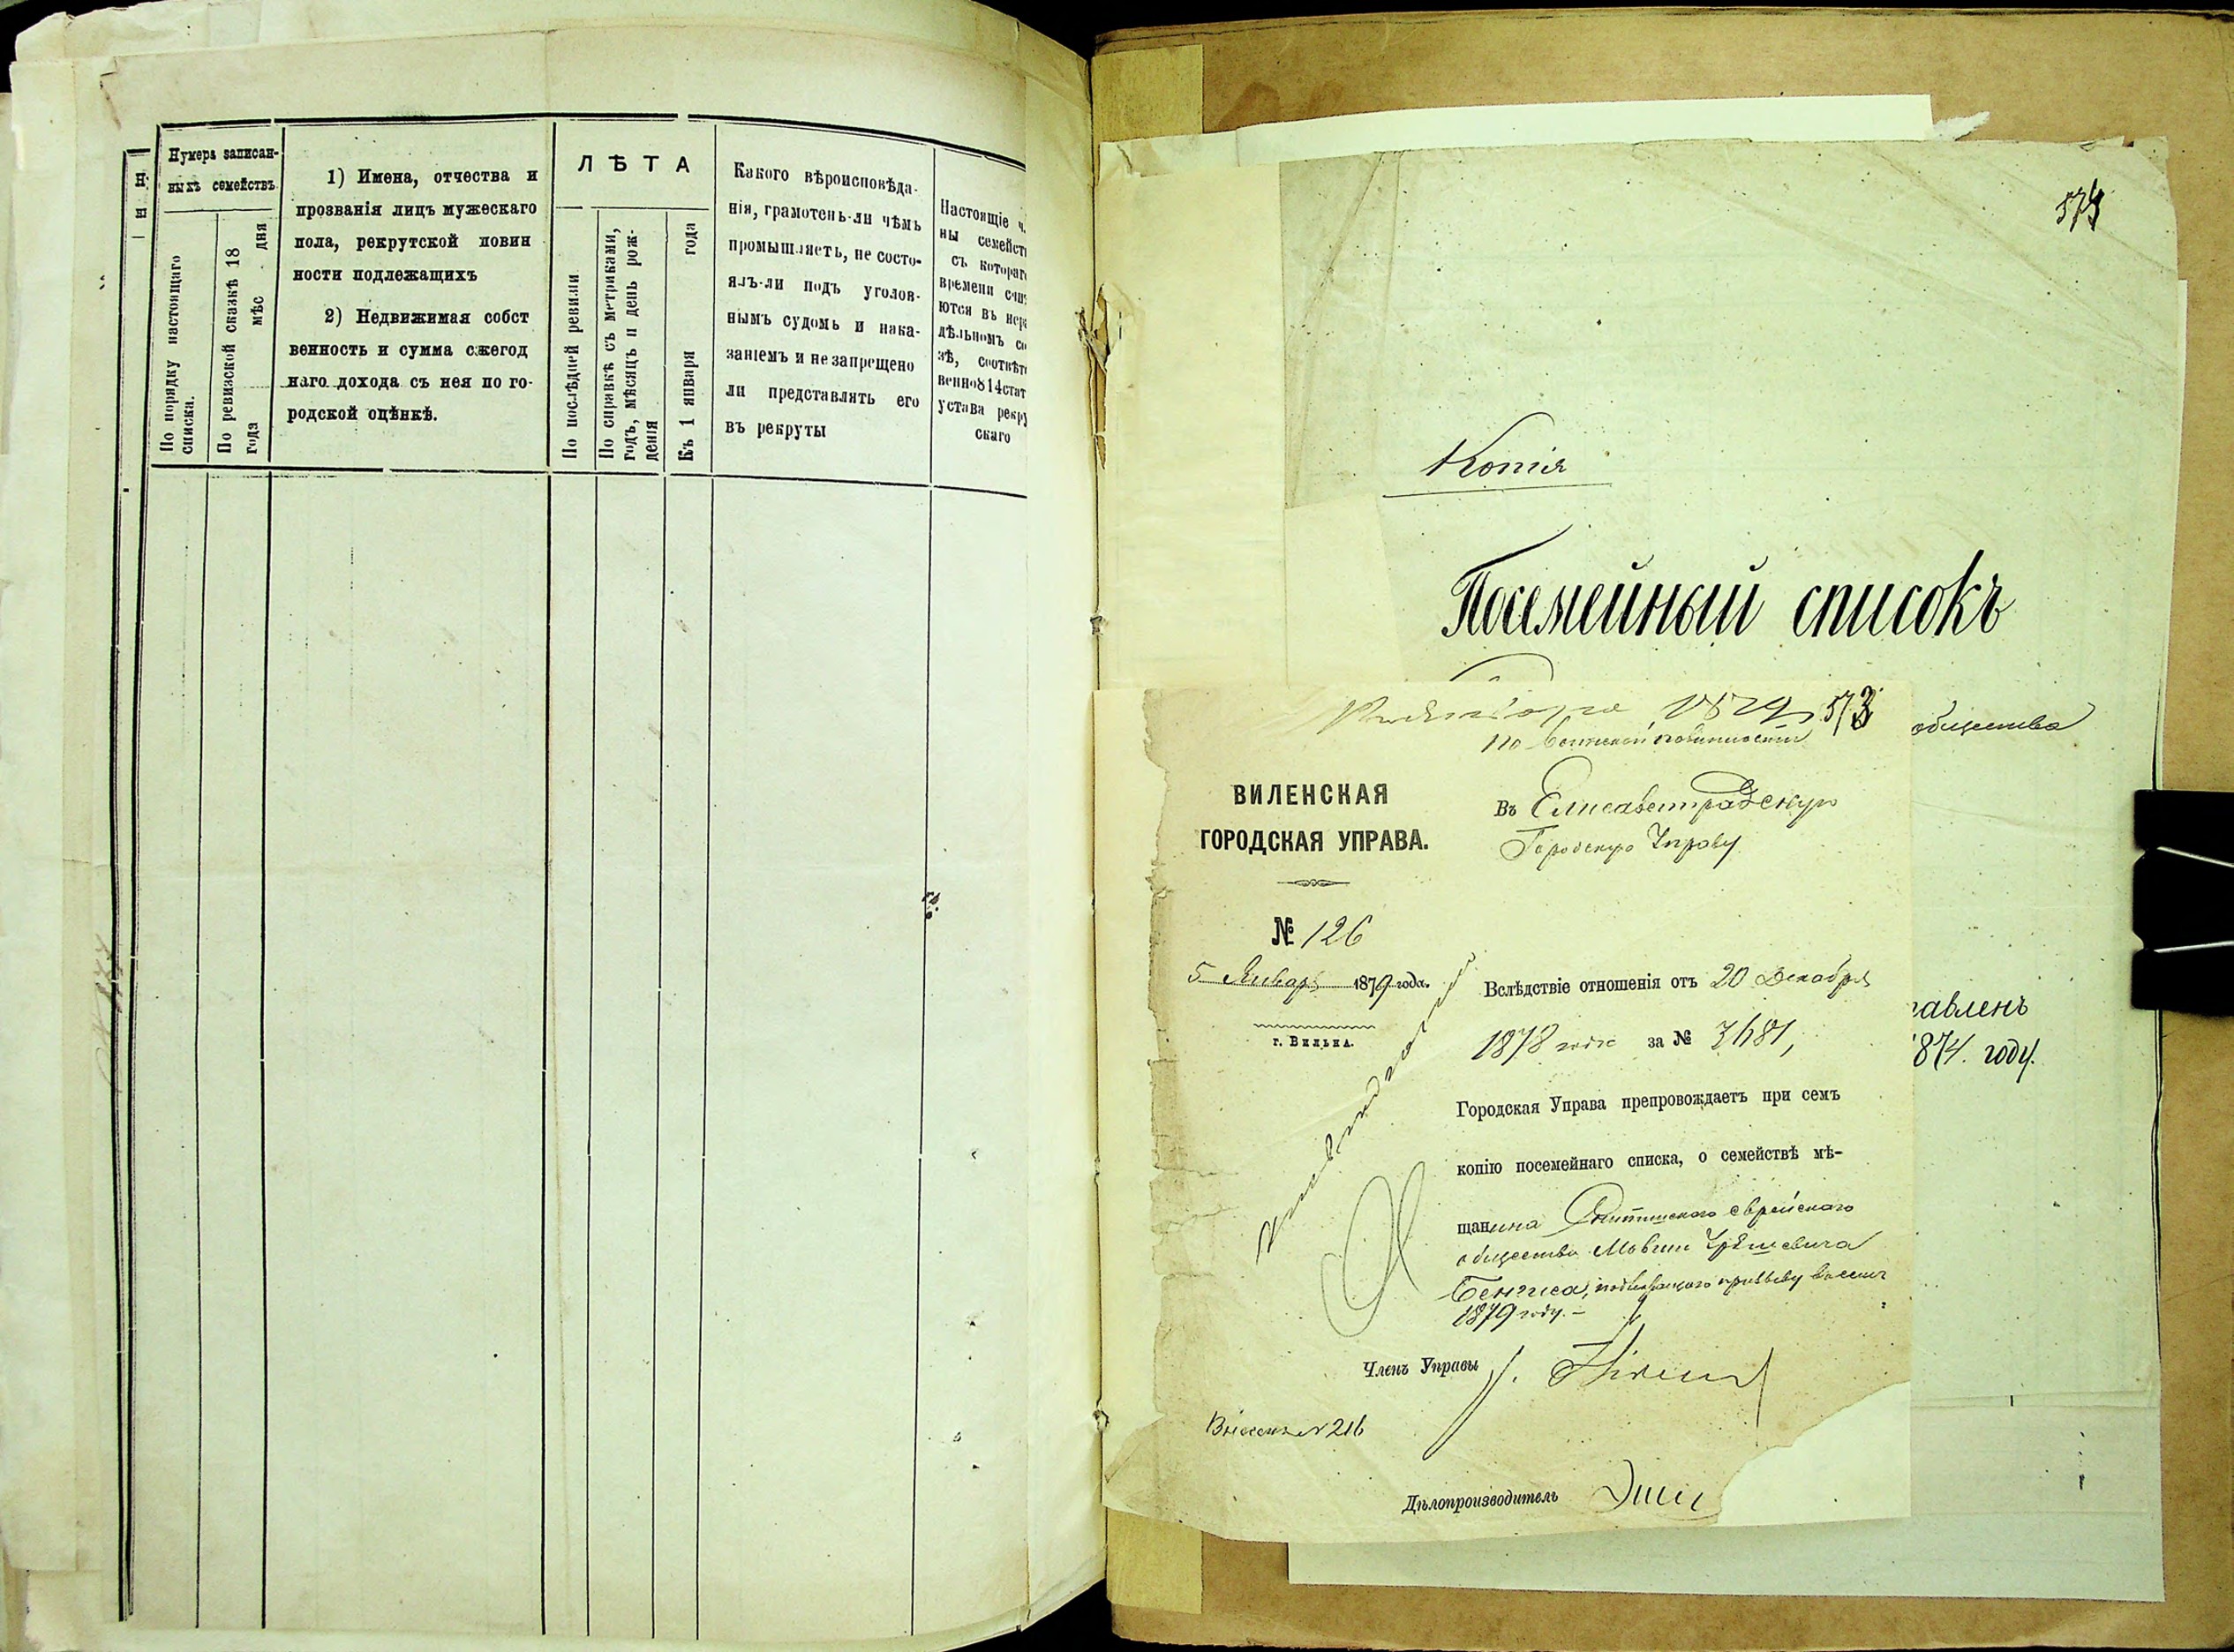 Н
и
Нумера записан-
ныхъ семействъ
По порядку настоящаго
списка.
По ревизской сказкѣ 18
года мѣс дня
1) Имена, отчества и
прозванія лицъ мужескаго
пола, рекрутской повин
ности подлежащихъ
2) Недвижимая собст
венность и сумма ежегод
наго дохода съ нея по го-
родской оцѣнкѣ.
ЛѢТА
По послѣдней ревизіи
По справкѣ съ метриками,
годъ, мѣсяцъ и день рож-
денія
Къ 1 января года
Какого вѣроисповѣда-
нія, грамотенъ-ли чѣмъ
промышляетъ, не состо-
ялъ-ли подъ уголов-
нымъ судомъ и нака-
заніемъ и не запрещено
ли представлять его
въ рекруты
Настоящіе ч
ны семейст
съ котораг
времени счи
ются въ нер
дѣльномъ со
зѣ, соотвѣт
венно 814 стат
устава рекру
скаго
574
Копія
Посемейный списокъ
общества
тавленъ
1874. году.
1879 573
По воинской повинности
ВИЛЕНСКАЯ
ГОРОДСКАЯ УПРАВА.
№ 126
5 Января 1879 года.
г. Вильна.
Въ Елисаветградскую
Городскую Управу
Вслѣдствіе отношенія отъ 20 Декабря
1878 года за № 3681,
Городская Управа препровождаетъ при семъ
копію посемейнаго списка, о семействѣ мѣ-
щанина еврейскаго
общества Мовши
Бенгиса, подлежащаго призыву
1879 году. —
Членъ Управы
216
Дѣлопроизводитель